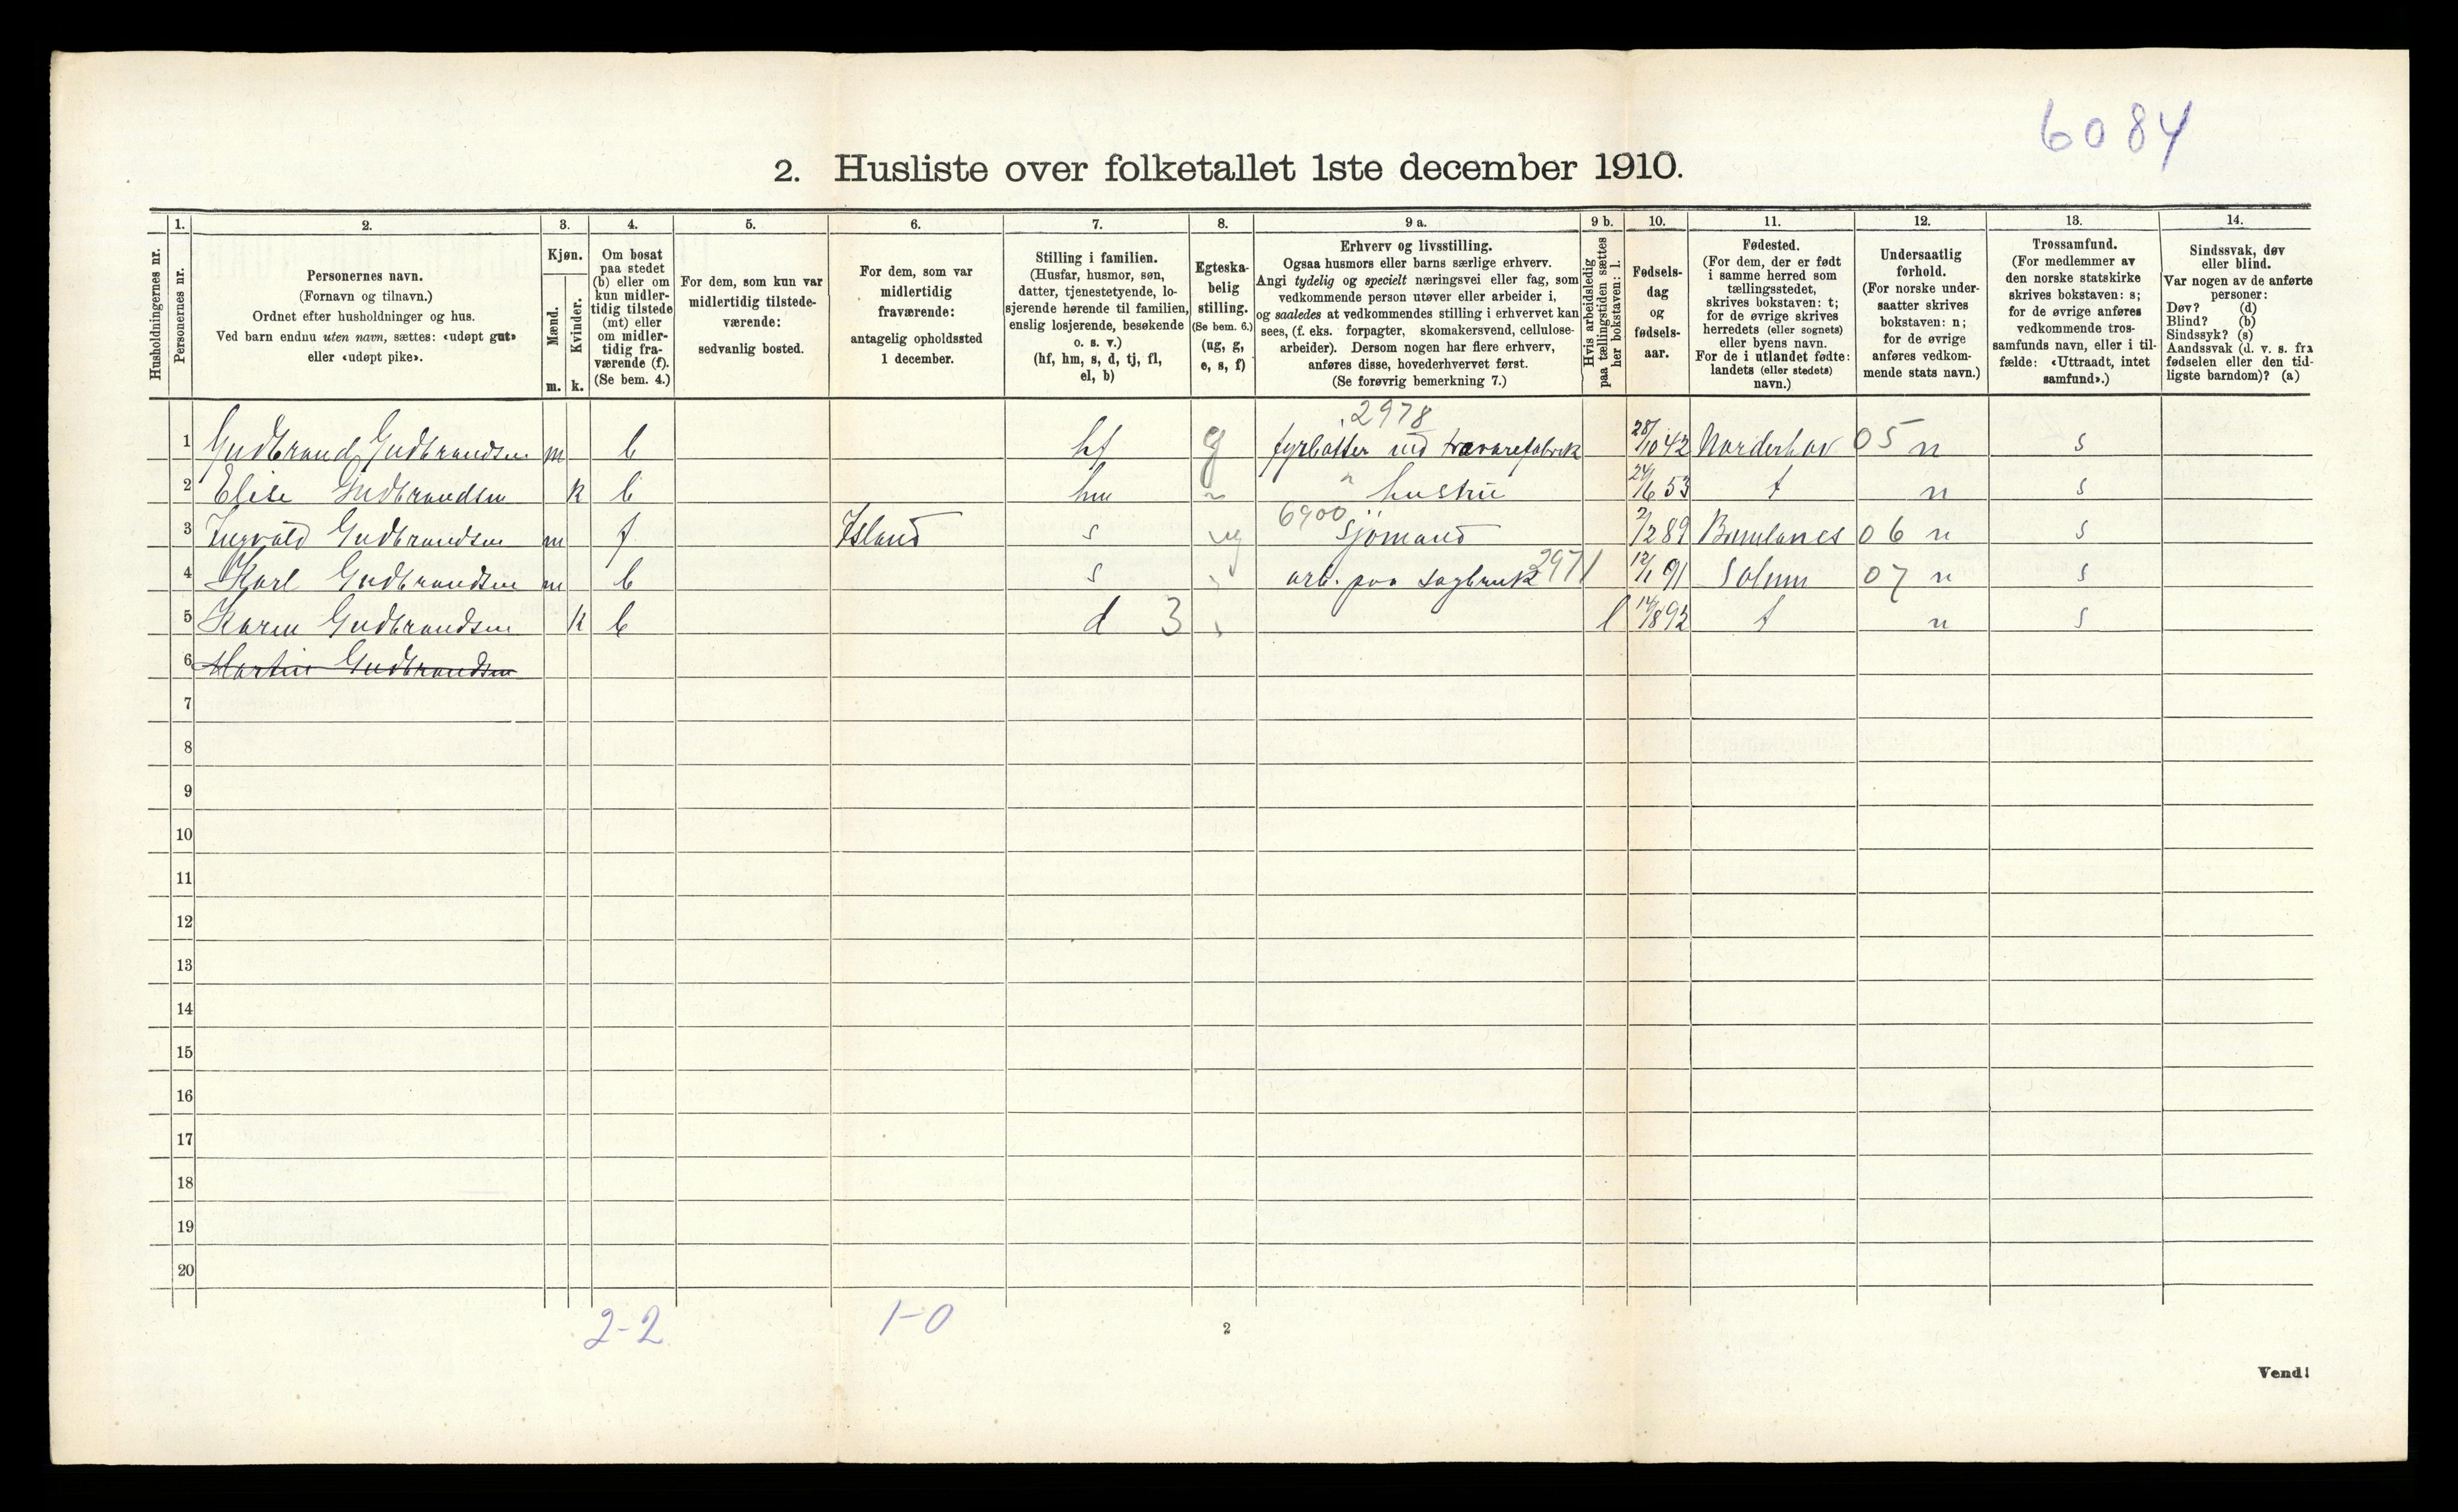 6084
2. Husliste over folketallet 1ste december 1910.
Husholdningernes nr.
1.
Personernes nr.
2.
Personernes navn.
(Fornavn og tilnavn.)
Ordnet efter husholdninger og hus.
Ved barn endnu uten navn, sættes: «udøpt gut»
eller «udøpt pike».
3.
Kjøn.
Mænd.
Kvinder.
m. k.
4.
Om bosat
paa stedet
(b) eller om
kun midler-
tidig tilstede
(mt) eller
om midler-
tidig fra-
værende (f).
(Se bem. 4.)
5.
For dem, som kun var
midlertidig tilstede-
værende:
sedvanlig bosted.
6.
For dem, som var
midlertidig
fraværende:
antagelig opholdssted
1 december.
7.
Stilling i familien.
(Husfar, husmor, søn,
datter, tjenestetyende, lo-
sjerende hørende til familien,
enslig losjerende, besøkende
o. s. v.)
(hf, hm, s, d, tj, fl,
el, b)
8.
Egteska-
belig
stilling.
(Se bem. 6.)
(ug, g,
e, s, f)
9 a.
Erhverv og livsstilling.
Ogsaa husmors eller barns særlige erhverv.
Angi tydelig og specielt næringsvei eller fag, som
vedkommende person utøver eller arbeider i,
og saaledes at vedkommendes stilling i erhvervet kan
sees, (f. eks. forpagter, skomakersvend, cellulose-
arbeider). Dersom nogen har flere erhverv,
anføres disse, hovederhvervet først.
(Se forøvrig bemerkning 7.)
9 b.
Hvis arbeidsledig
paa tællingstiden sættes
her bokstaven: l.
10.
Fødsels-
dag
og
fødsels-
aar.
11.
Fødested.
(For dem, der er født
i samme herred som
tællingsstedet,
skrives bokstaven: t;
for de øvrige skrives
herredets (eller sognets)
eller byens navn.
For de i utlandet fødte:
landets (eller stedets)
navn.)
12.
Undersaatlig
forhold.
(For norske under-
saatter skrives
bokstaven: n;
for de øvrige
anføres vedkom-
mende stats navn.)
13.
Trossamfund.
(For medlemmer av
den norske statskirke
skrives bokstaven: s;
for de øvrige anføres
vedkommende tros-
samfunds navn, eller i til-
fælde: «Uttraadt, intet
samfund».)
14.
Sindssvak, døv
eller blind.
Var nogen av de anførte
personer:
Døv? (d)
Blind? (b)
Sindssyk? (s)
Aandssvak (d. v. s. fra
fødselen eller den tid-
ligste barndom)? (a)
2978
1 Gudbrand Gudbrandsen m b hf g fyrbøtter ved trævarefabrik 28/10 42 Norderhov 05 n s
2 Elise Gudbrandsen k b hm " " hustru 24/6 53 t n s
3 Ingvald Gudbrandsen m f Island s ug 6900 Sjømand 2/2 89 06 n s
4 Karl Gudbrandsen m b s " arb. paa sagbruk 2971 12/1 91 Solum 07 n s
5 Karen Gudbrandsen k b d 3 " l 14/8 92 t n s
6 Martin Gudbrandsen
7
8
9
10
11
12
13
14
15
16
17
18
19
20
2-2 1-0
2
Vend!